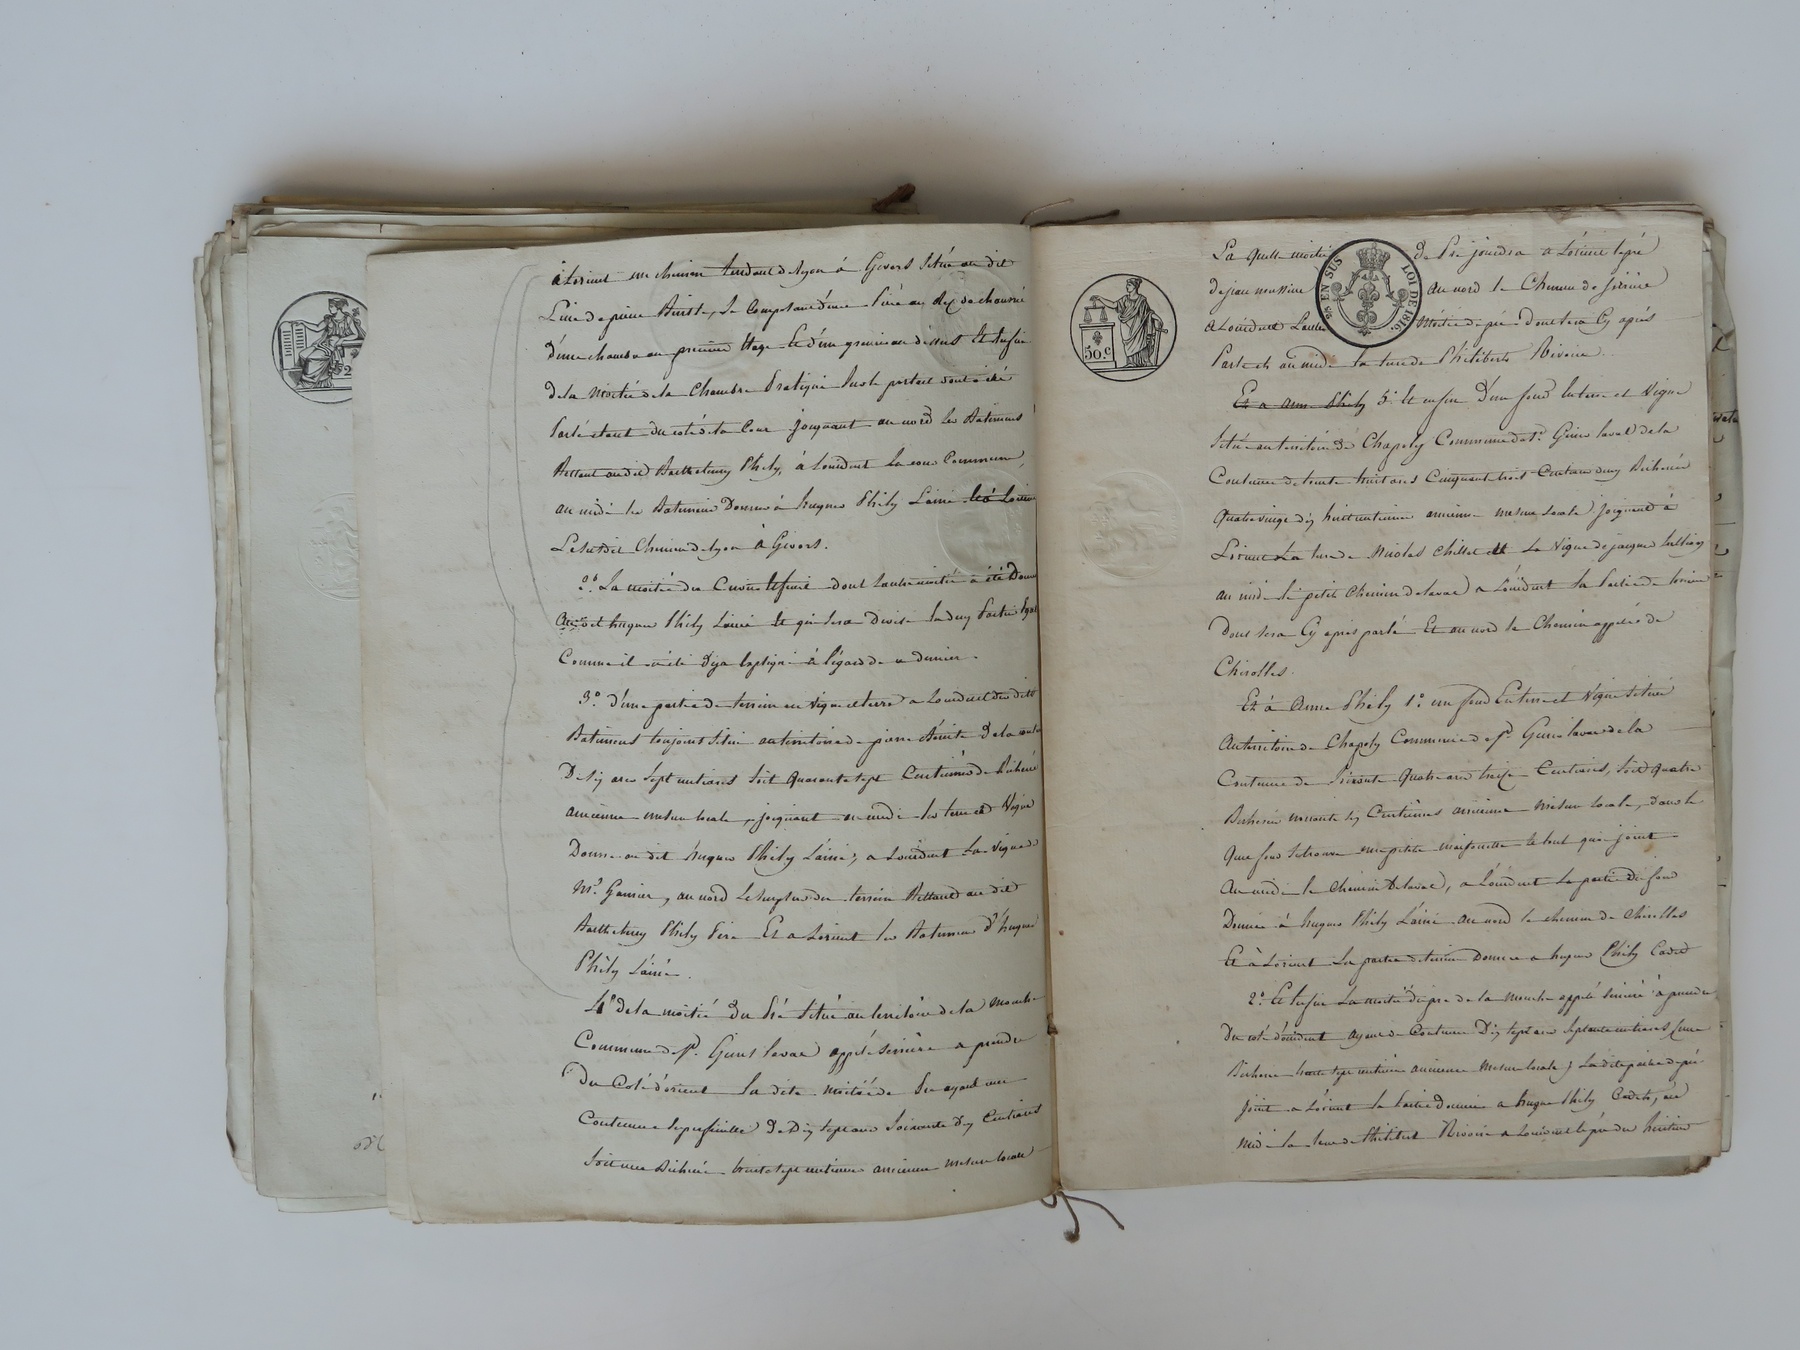 à Lorient un chemin tendant de Lyon à Givors situé au dit
Lieu de pierre Bénite, Se Composant d'une pièce au rez de chaussée
d'une chambre au premier Etage Et d'un grenier au dessus Et Enfin
de la moitié de la Chambre Pratiquée Sur le portail
étant du côté de la Cour joignant au nord les Batiments
Restant audit Barthelemy Phily, à Loccident La cour Commune,
au midi les Batiments Donnés à hugues Phily L'ainé
Le Susdit Chemin de Lyon à Givors.
2° La moitié du dont Lautre moitié a été Donnée
hugues Phily Lainé Et qui Sera Divisé En deux Parties Egales
Comme il a été Déja Expliqué à l'égard de ce dernier.
3° d'une partie de terrein en vigne et terre a Loccident des dits
Batiments toujours Situé au territoire de pierre Bénite De la contenue
De Six ares Sept centiares Soit Quarante Sept Centièmes de Bicherée
ancienne mesure locale, joignant au midi les terre et Vigne
Donnés au dit hugues Phily Lainé; a Loccident La vigne de
Mr. Garnier, au nord Le Surplus du terrein Restant au dit
Barthelemy Phily Père Et a Lorient les Batiments d'hugues
Phily Lainé.
4° de la moitié du Pré Situé au territoire de la mouche
Commune de St. Genis laval appelé a prendre
Du Coté d'orient La dite moitié de Pré ayant une
Contenue Superficielle De Dix Sept ares Soixante Dix Centiares
Soit une Bicherée trente sept centièmes ancienne mesure locale
La quelle moitié de Pré joindra a Lorient le pré
de jean au nord le Chemin de
a Loccident L'autre Moitié de pré Dont sera Cy après
Parlé et au midi la terre de Philiberte Rivoire.
Et a Anne Phily 5° Et enfin D'un fond En terre et Vigne
Situé au territoire de Chapoly Commune de St. Genis laval de la
Contenue de trente huit ares Cinquante trois Centiares deux Bicherées
Quatre vingt dix huit centièmes ancienne mesure locale joignant à
Lorient La terre de Nicolas Chillet et La Vigne de jacques
au midi le petit Chemin de laval a Loccident La Partie de terrein
Dont sera Cy après parlé Et au nord le Chemin appelé de
Chirolles.
Et à Anne Phily 1° un fond En terre et Vigne Situé
Au territoire de Chapoly Commune de St. Genis laval de la
Contenue de Soixante Quatre ares treize Centiares, Soit Quatre
Bicherées nonante six Centièmes ancienne mesure locale, Dans le
Quel fond Se trouve une petite maisonnette le tout qui joint
Au midi le Chemin De laval, a Loccident La partie De fond
Donnée à hugues Phily Lainé au nord le chemin de Chirolles
Et à Lorient La partie de terrein Donnée a hugues Phily Cadet
2° Et Enfin La moitié du pré de la mouche appelé a prendre
Du coté d'occident ayant de Contenue Dix Sept ares Soixante centiares
Bicherée trente sept centièmes ancienne mesure locale) La dite partie de pré
joint a Lorient la Partie Donnée a hugues Phily Cadet, au
midi la terre de Philiberte Rivoire a Loccident le pré des héritiers
50 C
EN SUS
LOI DE 1816